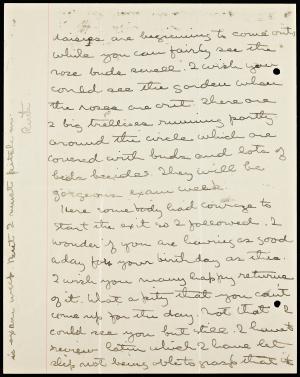 daisies are beginning to come out,
while you can fairly see the
rose buds swell. I wish you
could see the garden when
the roses are out. There are
2 big trellises running partly
around the circle which are
covered with buds and lots of
beds besides. They will be
gorgeous exam week.
Here somebody had courage to
start the exit so I followed. I
wonder if you are having as good
a day for your birthday as this.
I wish you many happy returns
of it. What a pity that you can't
come up for the day. Not that I
could see you but still. I must
review Latin which I have let
slip not being able to grasp that it
is exam week. But I must pitch in.
Ruth